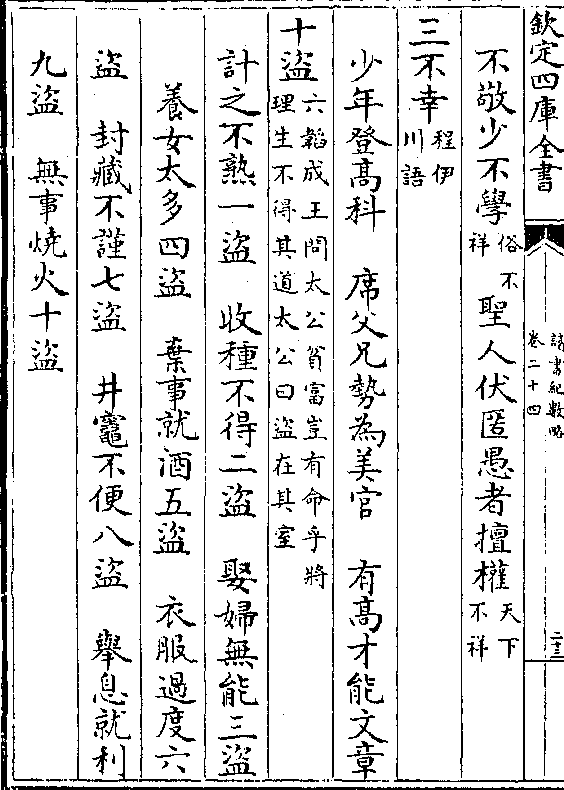 欽定四庫全書
讀書紀數略
卷二十四
二十三
不敬少不學俗不祥 聖人伏匿愚者擅權天下不祥
三不幸程伊川語
少年登高科 席父兄勢為美官 有高才能文章
十盜六韜成王問太公貧富豈有命乎將理生不得其道太公曰盜在其室
計之不熟一盜 收種不得二盜 娶婦無能三盜
養女太多四盜 棄事就酒五盜 衣服過度六
盜 封藏不謹七盜 井竈不便八盜 舉息就利
九盜 無事燒火十盜